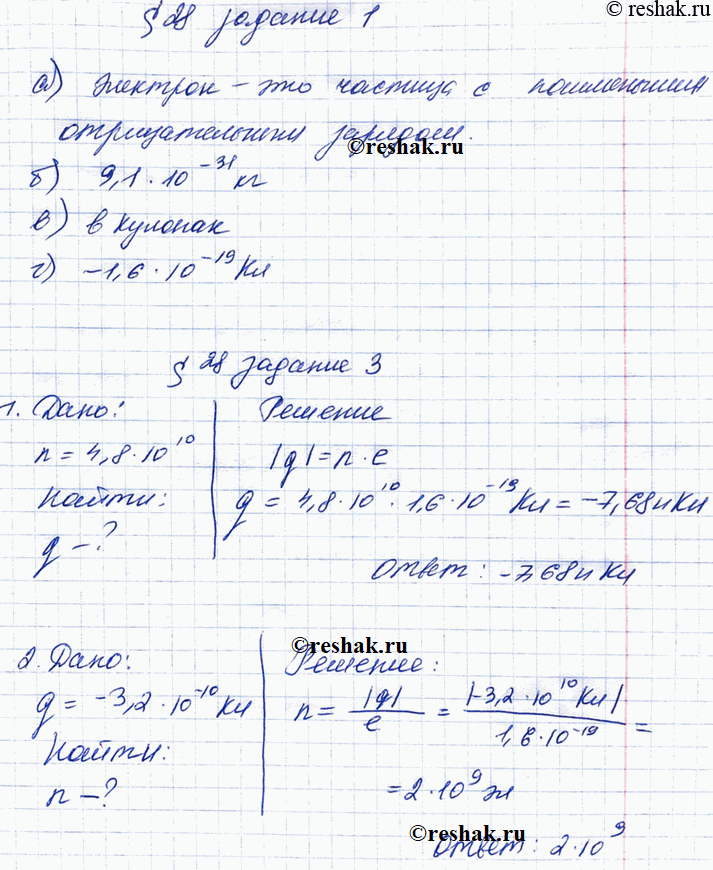 © reshak.ru
§ 28 задание 1
а) электрон – это частица с наименьшим
отрицательным зарядом.
© reshak.ru
б) 9,1 · 10⁻³¹ кг
в) в кулонах
г) –1,6 · 10⁻¹⁹ Кл
§ 28 задание 3
1. Дано: Решение
n = 4,8 · 10¹⁰ |q| = n · e
Найти: q = 4,8 · 10¹⁰ · 1,6 · 10⁻¹⁹ Кл = –7,68 нКл
q – ?
Ответ: –7,68 нКл
© reshak.ru
2. Дано: Решение:
q = –3,2 · 10⁻¹⁰ Кл n = |q| / e = |–3,2 · 10¹⁰ Кл| / 1,6 · 10⁻¹⁹ =
Найти:
n – ? = 2 · 10⁹ эл
© reshak.ru
Ответ: 2 · 10⁹